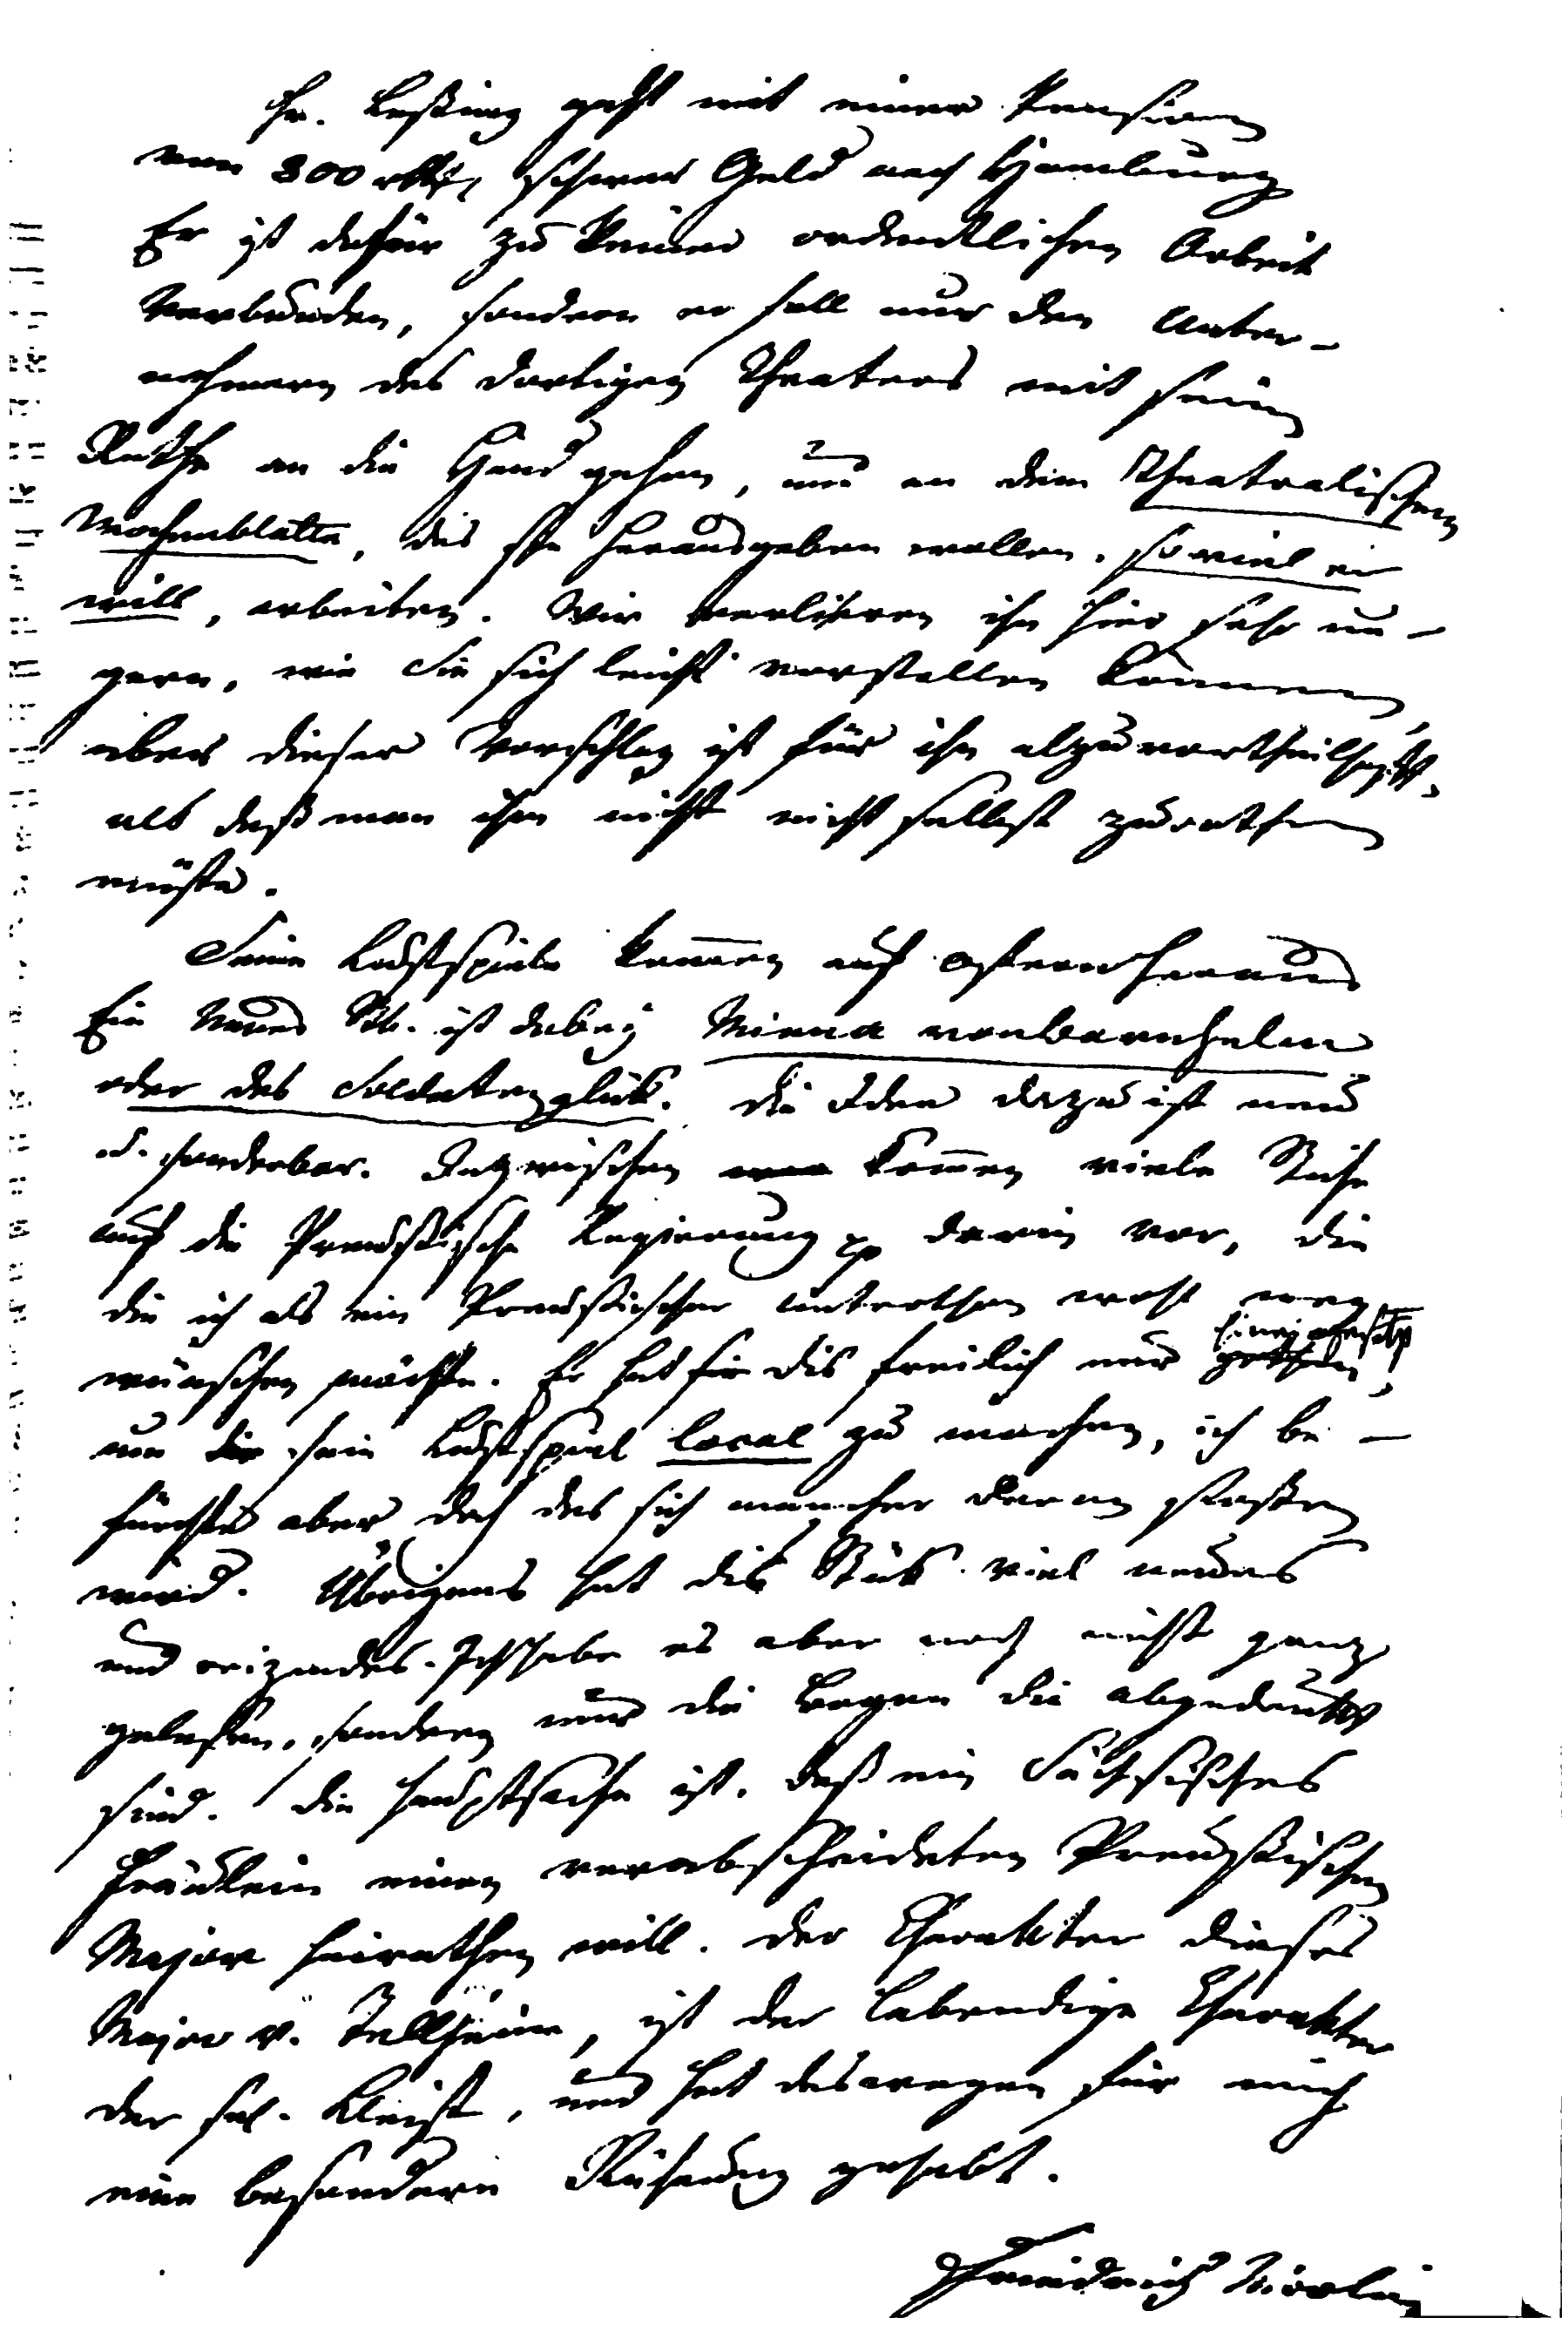 Hr. Leßing geht mit einer Pension
von 800 rthlr schwer Geld nach Hamburg
Er ist dafür zu keiner ordentlichen Arbeit
verbunden, sondern er soll nur den Unter-
nehmern des dortigen Theaters mit seinen
Rathe an die Hand gehen, und an dem Theatralischen
Wochenblatte, das sie herausgeben wollen, so viel er
will, arbeiten. Wir verlieren ihn hier sehr un-
gern, wie Sie sich leicht vorstellen können,
aber dieser Vorschlag ist für ihn alzuvortheilhafft,
als daß man ihm nicht nicht selbst zurathen
müste.
Seine Lustspiele kom̅en auf Ostern heraus
Ein neues St. ist dabey Minna von Barnhelm
oder das Soldatenglük. Die Idee dazu ist neu
u. sonderbar. Inzwischen kom̅en viele Stiche
auf die Preußische Regierung pp darin vor, die
die ich als ein Preußischer Unterthan wohl weg
wünschen möchte. Er hat sie dis freilich nur hineingesetzt,
um sein Lustspiel local zu machen, ich be-
fürchte aber doch das sich mancher daran stoßen
wird. Übrigens hat dis Stük viel neues
und reizendes. Ich habe es aber noch nicht ganz
gelesen, sondern nur die Bogen die abgedrukt
sind. Die Hauptsache ist, daß ein Sächsisches
Fräulein einen verabscheideten Preußischen
Major heirathen will. Der Charakter dieses
Major v. Tellheim, ist der lebendige Charakter
der sel. Kleist, und hat deswegen für mich
eine besondere Rührung gehabt.
Friedrich Nicolai